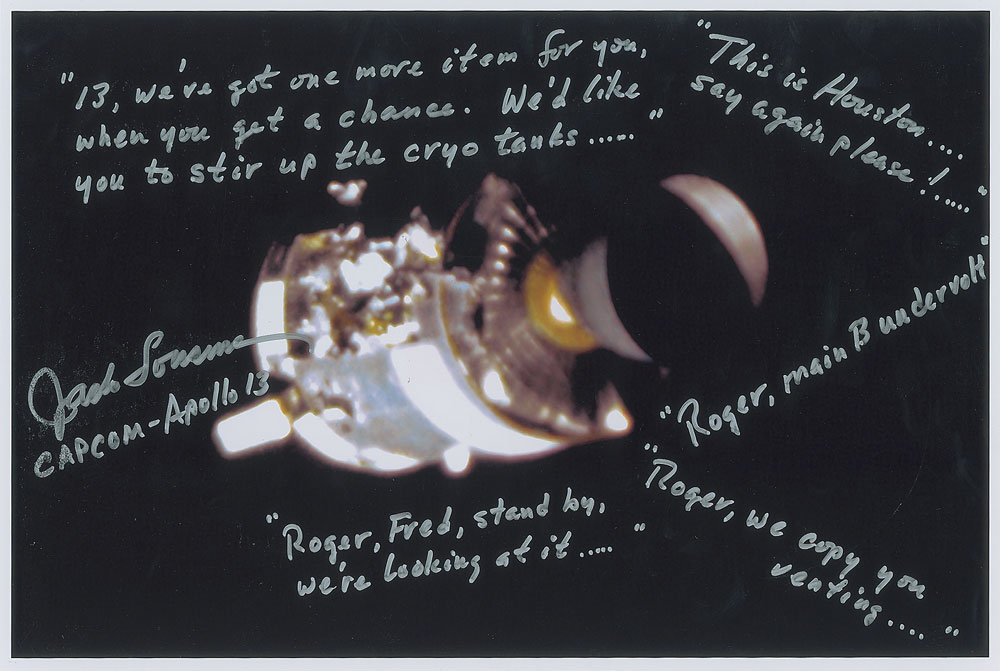 "13, we've got one more item for you,
when you get a chance. We'd like
you to stir up the cryo tanks ......"
"This is Houston....
say again please!....."
"Roger, main B undervolt"
Jack Lousma
CAPCOM-Apollo 13
"Roger, we copy you
venting....."
"Roger, Fred, stand by,
we're looking at it ....."